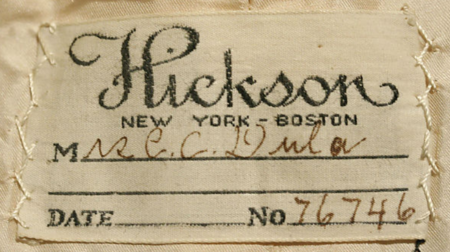 Hickson
NEW YORK - BOSTON
Mrs C. C. Dula
DATE No 76746